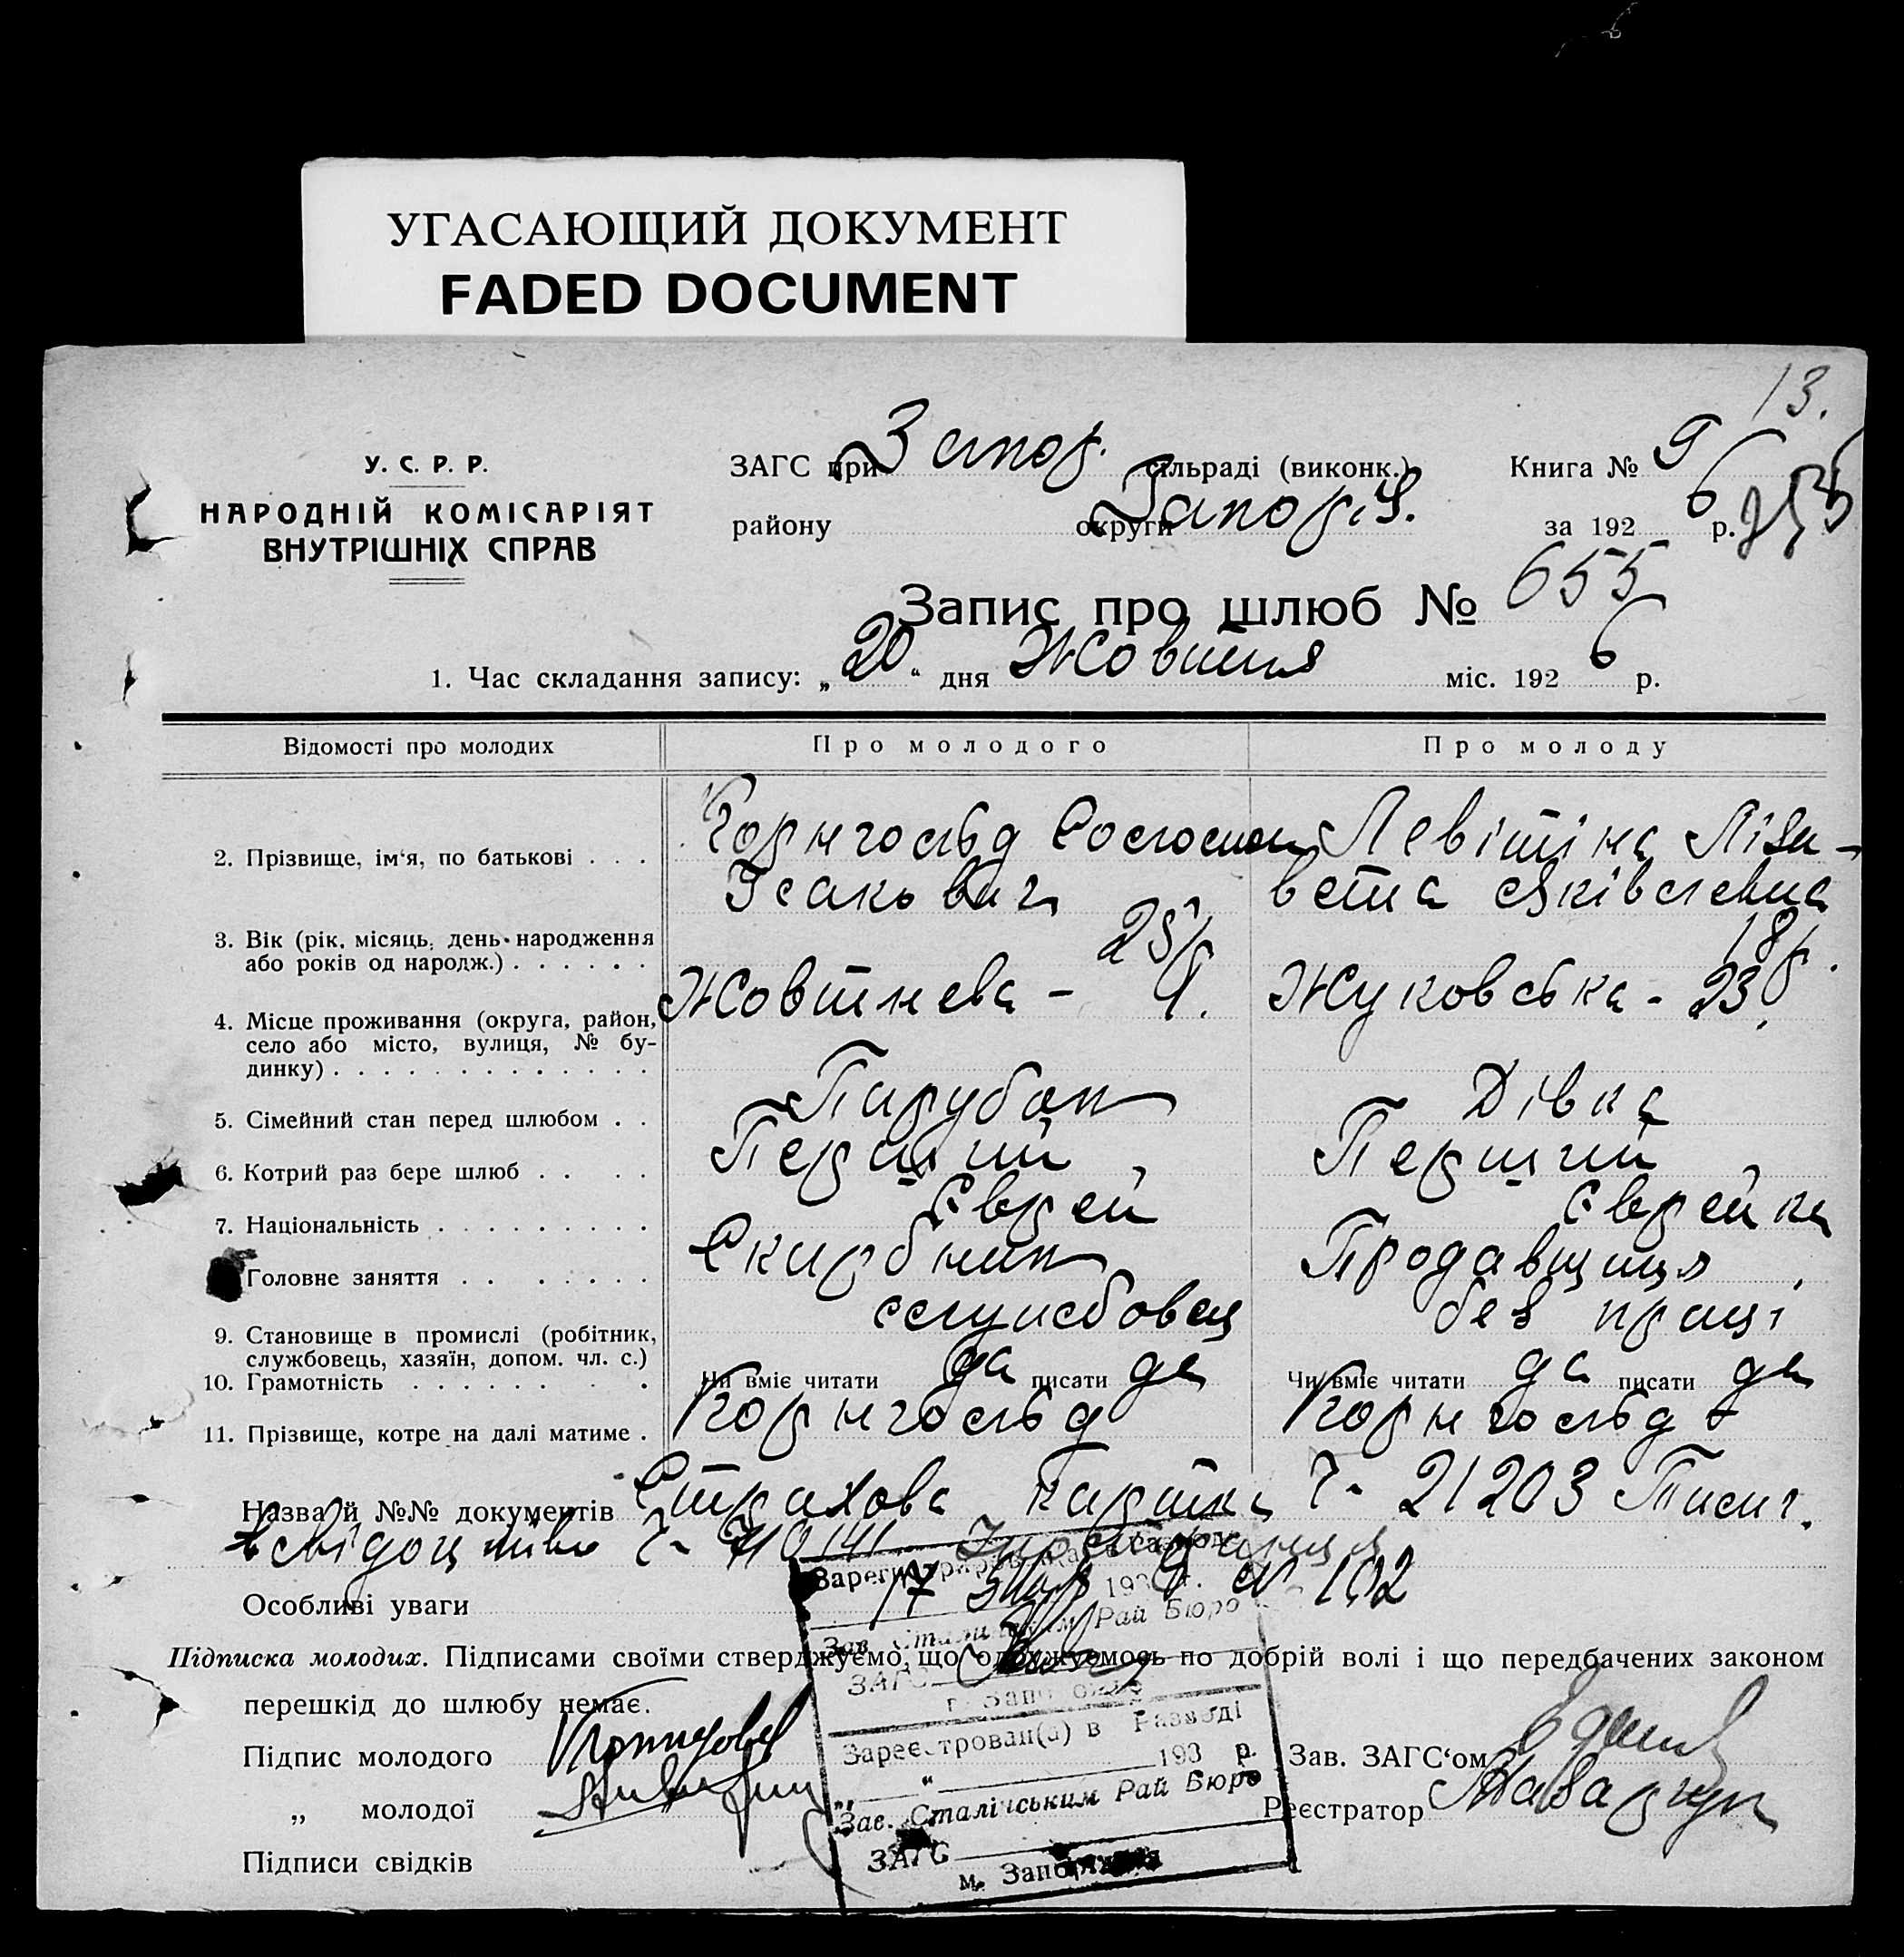 УГАСАЮЩИЙ ДОКУМЕНТ
FADED DOCUMENT
13.
У. С. Р. Р.
НАРОДНІЙ КОМІСАРІЯТ
ВНУТРІШНІХ СПРАВ
ЗАГС при Запор. сільраді (виконк.) Книга № 9
району округи Запоріз. за 1926 р.
Запис про шлюб № 655
1. Час складання запису: „20“ дня Жовтня міс. 1926 р.
Відомості про молодих Про молодого Про молоду
2. Прізвище, ім‘я, по батькові . . . Корнгольд Соломон Левітіна Ліза-
Ісакович вета Яківлевна
3. Вік (рік, місяць, день народження 25 р. 18 р.
або років од народж.) . . . . . .
4. Місце проживання (округа, район, Жовтнева - 9. Жуковська - 23
село або місто, вулиця, № бу-
динку) . . . . . . . . . . . . .
5. Сімейний стан перед шлюбом . . Парубок Дівка
6. Котрий раз бере шлюб . . . . Перший Перший
7. Національність . . . . . . . . . Єврей Єврейка
Головне заняття . . . . . . . Скарбник Продавщиця
9. Становище в промислі (робітник, службовец без праці
службовець, хазяїн, допом. чл. с.)
10. Грамотність . . . . . . . . . Чи вміє читати да писати да Чи вміє читати да писати да
11. Прізвище, котре на далі матиме . Корнгольд Корнгольд
Назва й №№ документів Страхова картка Ч- 21203 Писит.
свідоцтво Ч-
Особливі уваги
17 193 г. № 102
Зав. Рай Бюро
ЗАГС
Підписка молодих. Підписами своїми стверджуємо, що одружуємось по добрій волі і що передбачених законом
перешкід до шлюбу немає.
Підпис молодого
„ молодої
Підписи свідків
Зареєстрован(а) в Разводі
„ “ 193 р.
Зав. Сталінським Рай Бюро
ЗАГС
м. Запоріжжя
Зав. ЗАГС‘ом
Реєстратор